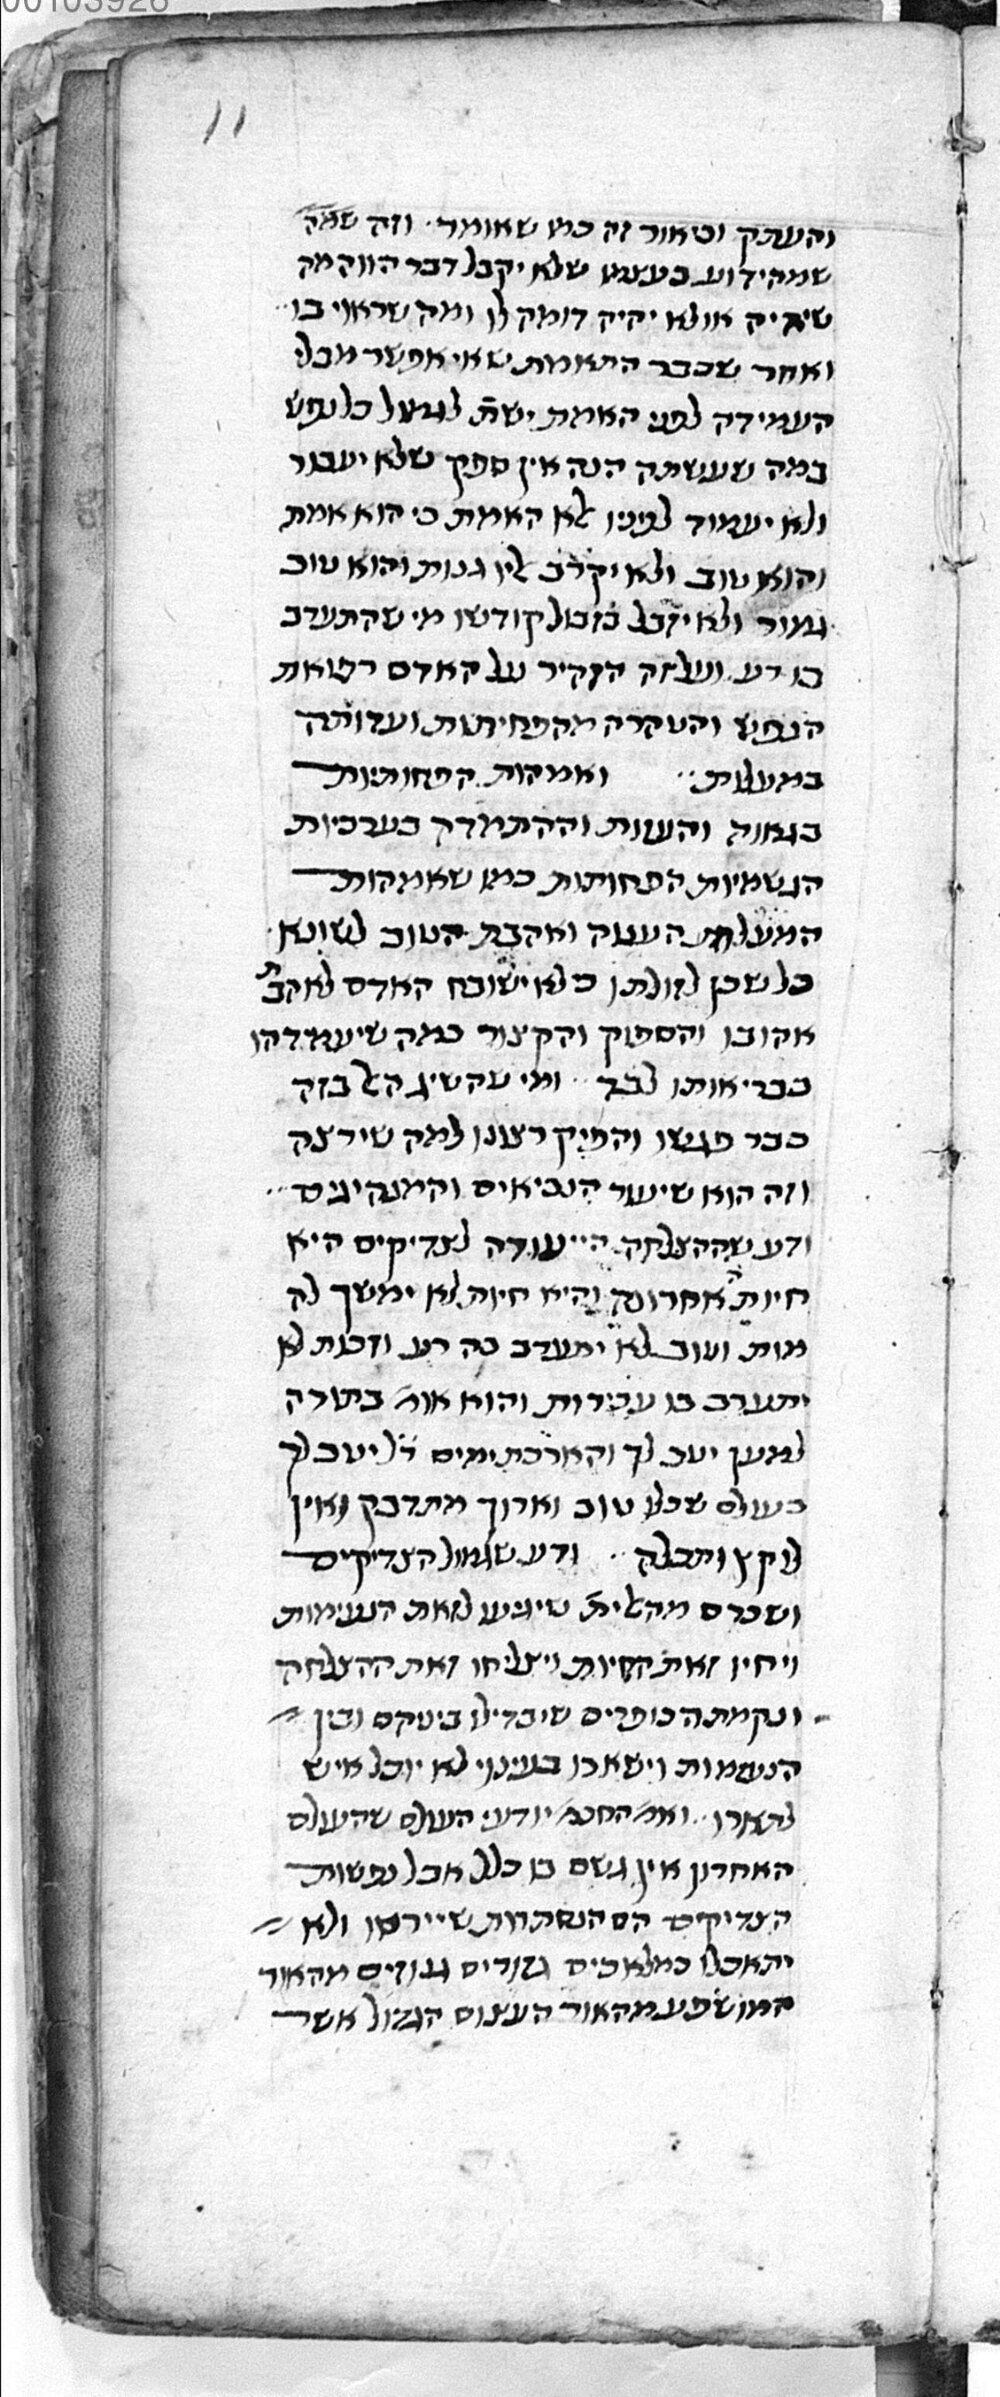 00103926
11
והעתק וביאור זה כמו שאומר · וזה שמה
שמהידוע בעצמו שלא יקבל דבר הווה מה
שיהיה או לא יהיה דומה לו ומה שראוי בו
ואחר שכבר התאמת שאי אפשר מבלי
העמידה לפני האמת ית' לגמול כל נפש
במה שעשתה הנה אין ספק שלא יעבור
ולא יעמוד לפניו אלא האמת כי הוא אמת
והוא טוב ולא יקרב אליו גנות והוא טוב
גמור ולא יזבל בזבול קודשו מי שהתערב
בו רע ועל זה הזהיר על האדם רפואת
הנפש והטהרה מהפחיתות ועדותה
במעלות ·· ואמהות הפחותיות
בגאוה והענות וההתמדך בערביות
הגשמיות הפחותות כמו שאמהות
המעלות הענוה ואהבת הטוב לשונא
כל שכן לזולתו כי לא ישובח האדם לאהבת
אהובו והספוק והקצור במה שיעמידהו
בבריאותו לבד ·· ומי שהשיג אל בזה
כבר פגשו והפיק רצונו למה שירצה
וזה הוא שיעור הנביאים והמנהיגים ··
ודע שההצלחה הייעודה לצדיקים היא
חיות האחרונה והיא חיות לא ימשך לה
מות וטוב לא יתערב בה רע וזכות לא
יתערב בו עכירות והוא אור בתורה
למען יטב לך והארכת ימים ר"ל יטב לך
בעולם שכלו טוב וארוך מתדבק ואין
לו קץ ותכלה ·· ודע שגמול הצדיקים
ושכרם מהאל ית' שיגיעו לזאת הנעימות
ויחיו זאת החיות ויצליחו זאת ההצלחה
ונקמת הכופרים שיבדילו ביניהם ובין
הנשמות וישארו בעינוי לא יוכל איש
לתארו ·· ואמ' החכמ' יודעי העולם שהעולם
האחרון אין גשם בו כלל אבל נפשות
הצדיקים הם הנשתרות שיירשו ולא
יתאכלו כמלאכים גזורים גנוזים מהאור
המושפע מהאור העצום הגדול אשר